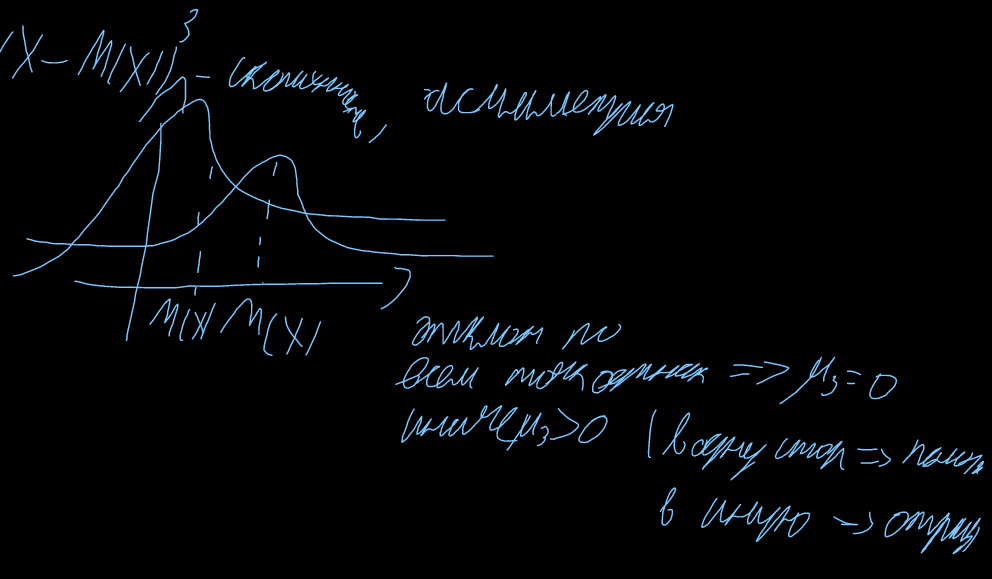 (X – M(X))³ – скошенность, асимметрия
M(X) M(X)
отклон по
всем точк одинак => μ₃=0
иначе μ₃>0 (в одну стор => полож
в иную -> отриц